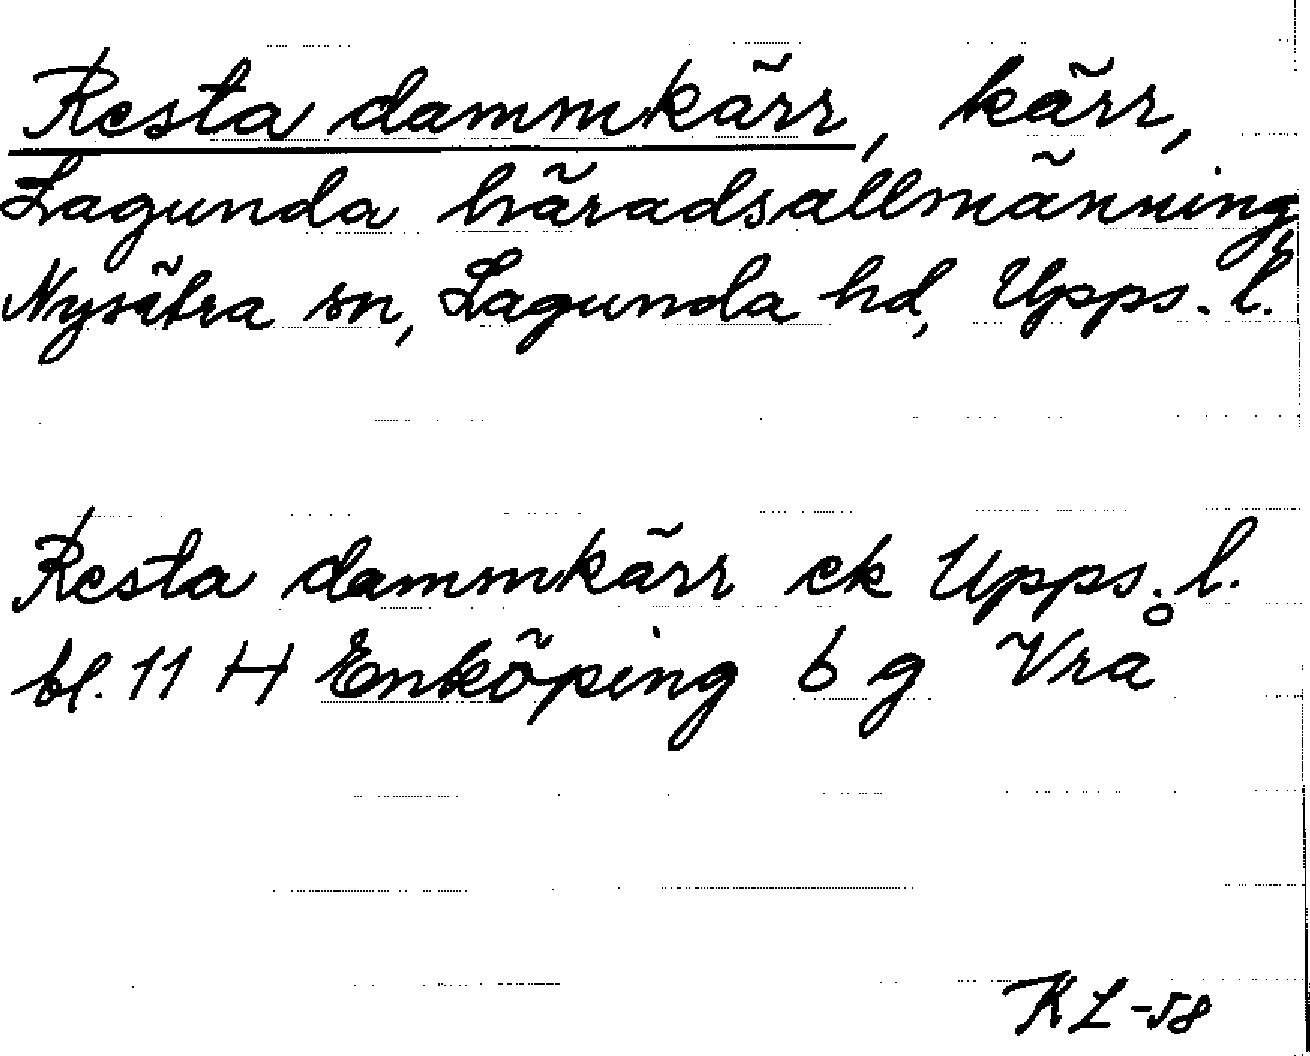 Resta dammkärr, kärr,
Lagunda häradsallmänning,
Nysätra sn, Lagunda hd, Upps. l.
Resta dammkärr ek Upps. l.
bl. 11 H Enköping 6 g Vrå
KL-58